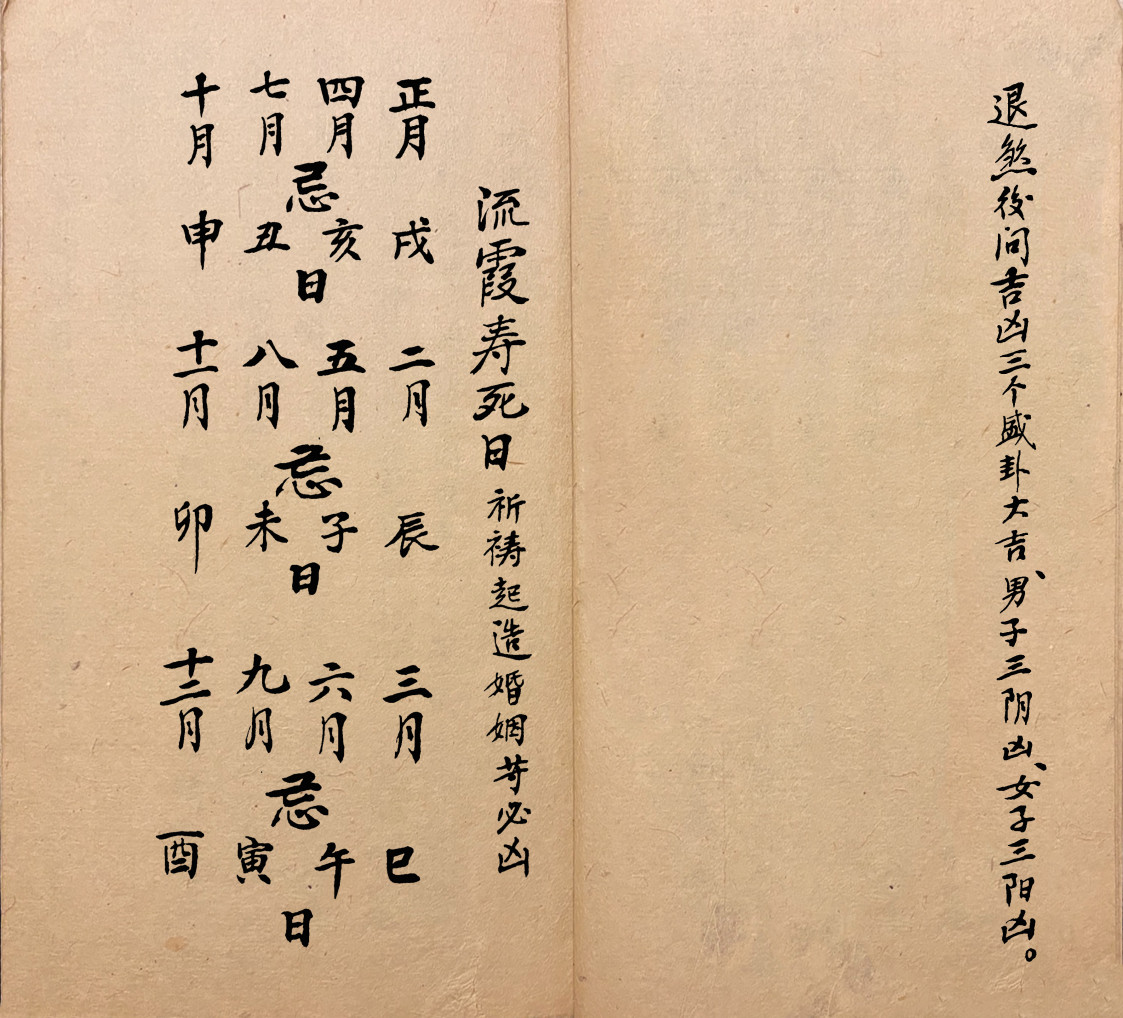 退煞後问吉凶三个盛卦大吉、男子三阴凶、女子三阳凶。
流霞寿死日 祈祷起造婚姻䒭必凶
正月戌 二月辰 三月巳
四月亥 五月子 六月午
忌日 忌日 忌日
七月丑 八月未 九月寅
十月申 十一月卯 十二月酉